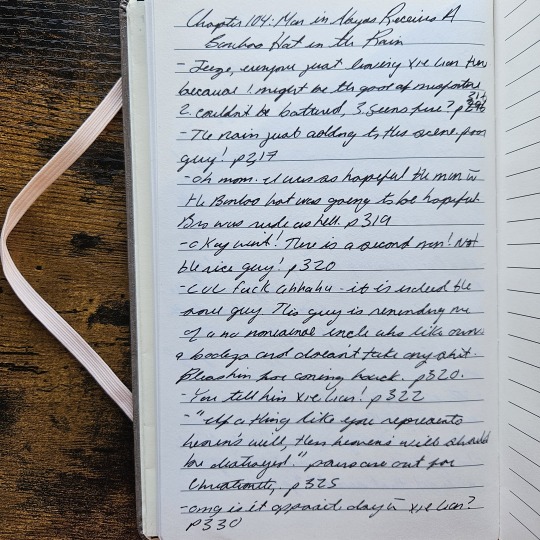 Chapter 104: Man in Mayas Receives A
Bamboo Hat in the Rain
- Jeeze, everyone just leaving Xie Lian there
because 1. might be the god of misfortune
2. couldn't be bothered, 3. Seems fine? p
- The rain just adding to this scene poor
guy! p317
- oh man. I was so hopeful the man in
the Bamboo hat was going to be hopeful.
Bro was rude as hell. p319
- okay wait! There is a second man! Not
the nice guy! p320
- LOL fuck ahhaha - it is indeed the
same guy. This guy is reminding me
of a no nonsense uncle who like owns
a bodega and doesn't take any shit.
Bless him for coming back. p320.
- You tell him Xie Lian! p322
- "If a thing like you represents
heaven's will, then heaven's will should
be destroyed." out for
Christianity, p325
- omg is it opposite day in Xie Lian?
p330